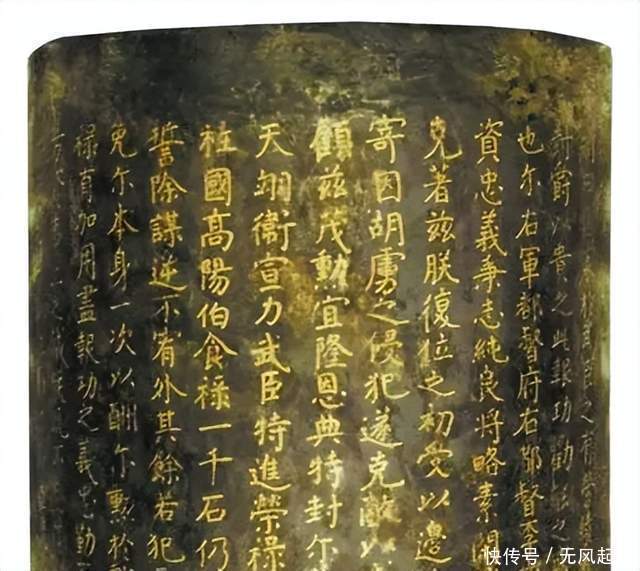 臣之有
爵以貴之此報功勸忠之
也尔右軍都督府右都督李
資忠義秉志純良將略素閑
克著兹朕復位之初受以邊
寄因胡虜之侵犯遂克敵以
顧兹茂勳宜隆恩典特封尔
天翊衞宣力武臣特進榮禄
柱國高陽伯食禄一千石仍
誓除謀逆不宥外其餘若犯
免尔本身一次以酬尔勲於
禄有加用盡報功之義忠勤
快传号/无风起